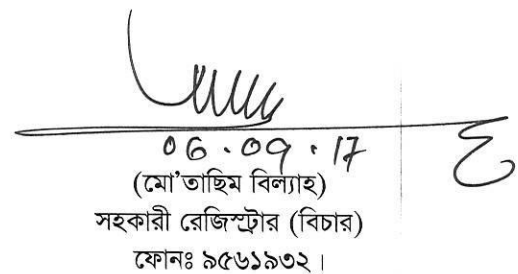 06.09.17
(মো'তাছিম বিল্যাহ)
সহকারী রেজিস্ট্রার (বিচার)
ফোনঃ ৯৫৬১৯৩২।